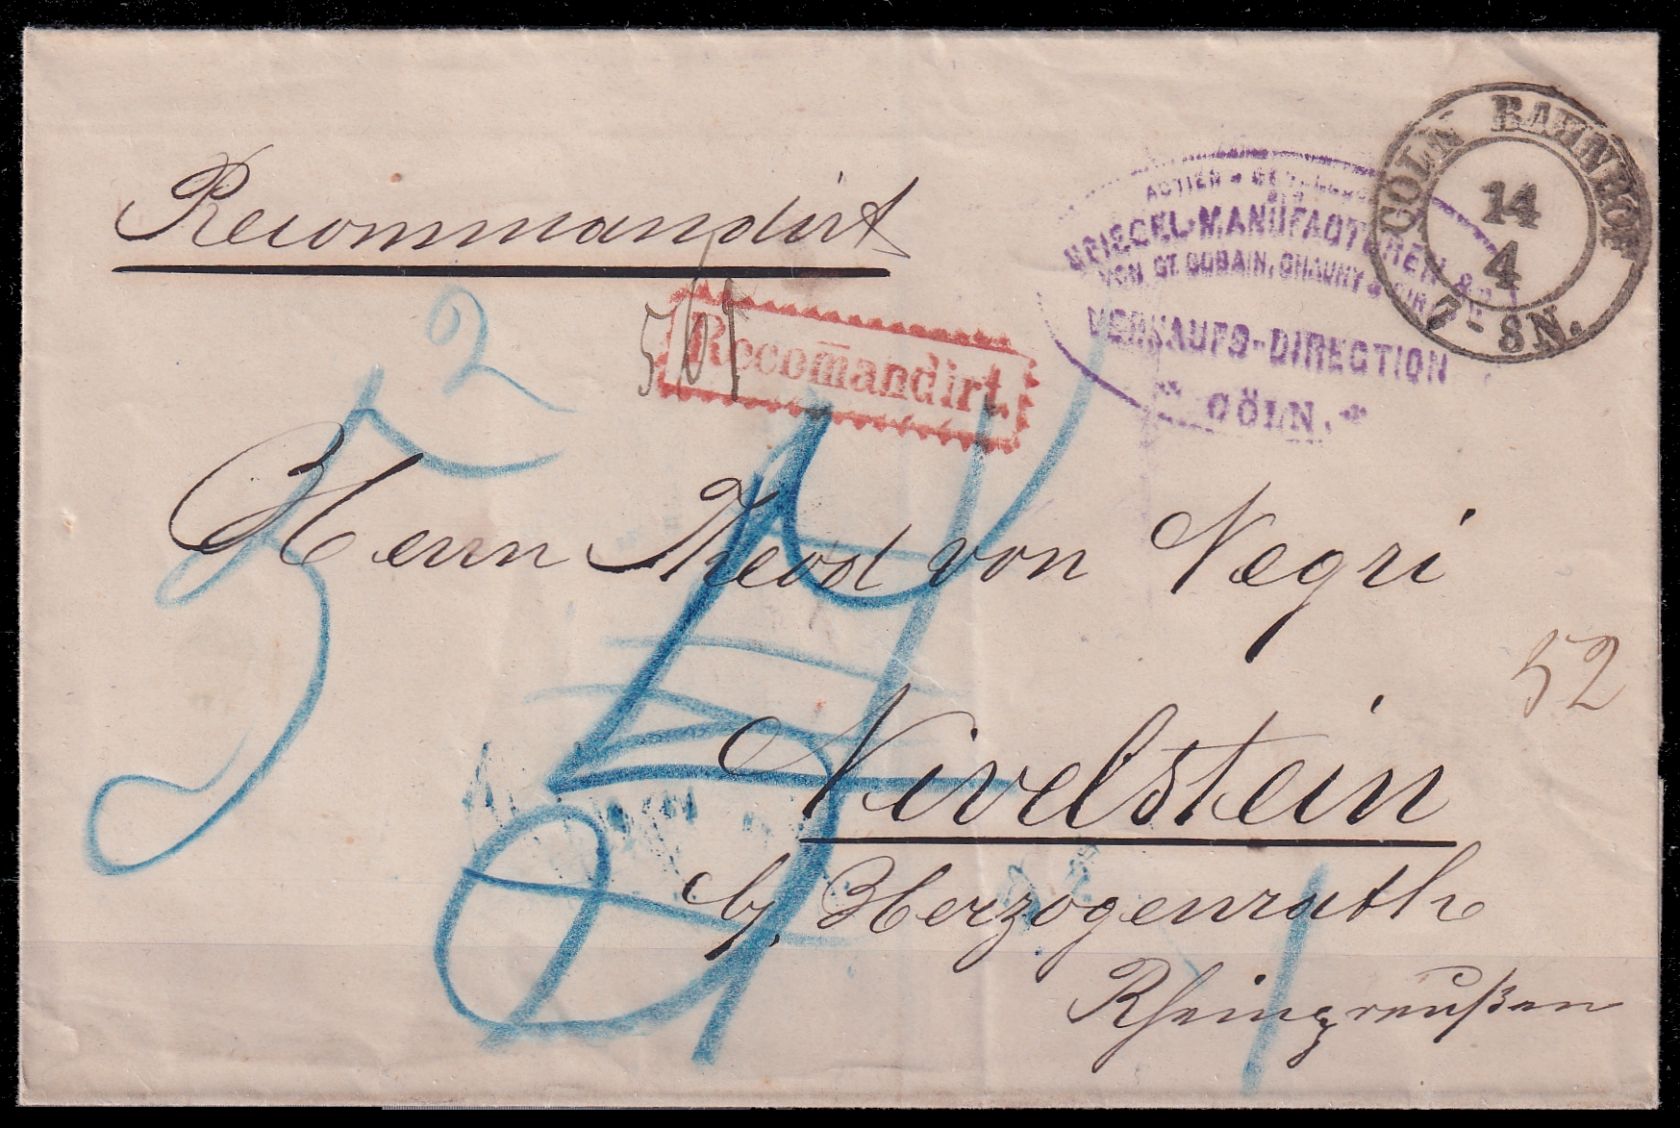 Recommandirt
CÖLN BAHNHOF
14
4
7-8N.
SPIEGEL-MANUFACTUREN
VON ST. GOBAIN, CHAUNY & CIR
VERKAUFS-DIRECTION
CÖLN.
2
Recomandirt.
Herrn Theod von Negri
52
Nivelstein
b/. Herzogenrath
Rheinpreußen